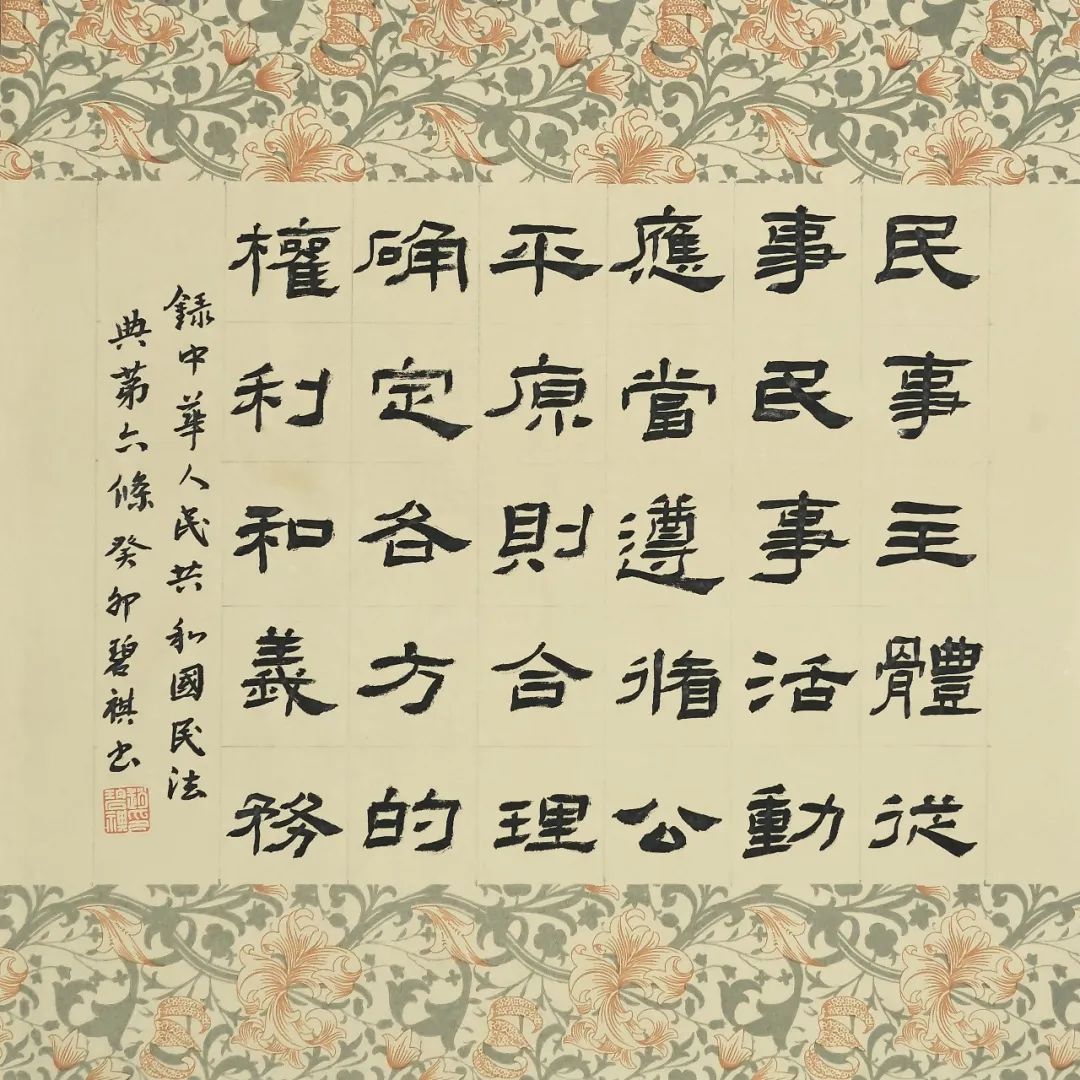 民事主體從
事民事活動
應當遵循公
平原則合理
确定各方的
權利和義務
録中華人民共和國民法
典第六條癸卯碧祺书